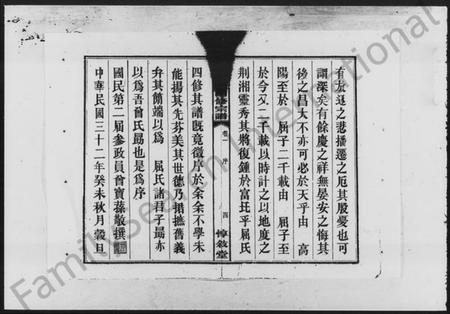 有放逐之悲播遷之厄其殷憂也可
謂深矣有餘慶之祥無晏安之悔其
後之昌大不亦可必於天乎由 高
陽至於 屈子二千載由 屈子至
於今又二千載以時計之以地度之
荊湘靈秀其將復鍾於富比平屈氏
修宗譜 卷 序 四 惇敘堂
四修其譜既竟徵序於余余不學未
能揚其先芬美其世德乃猥攄舊義
弁其簡端以為 屈氏諸君子勗亦
以為吾曾氏勗也是為序
國民第二屆參政員曾寶蓀敬撰
中華民國三十二年癸未秋月穀旦
FamilySearch International